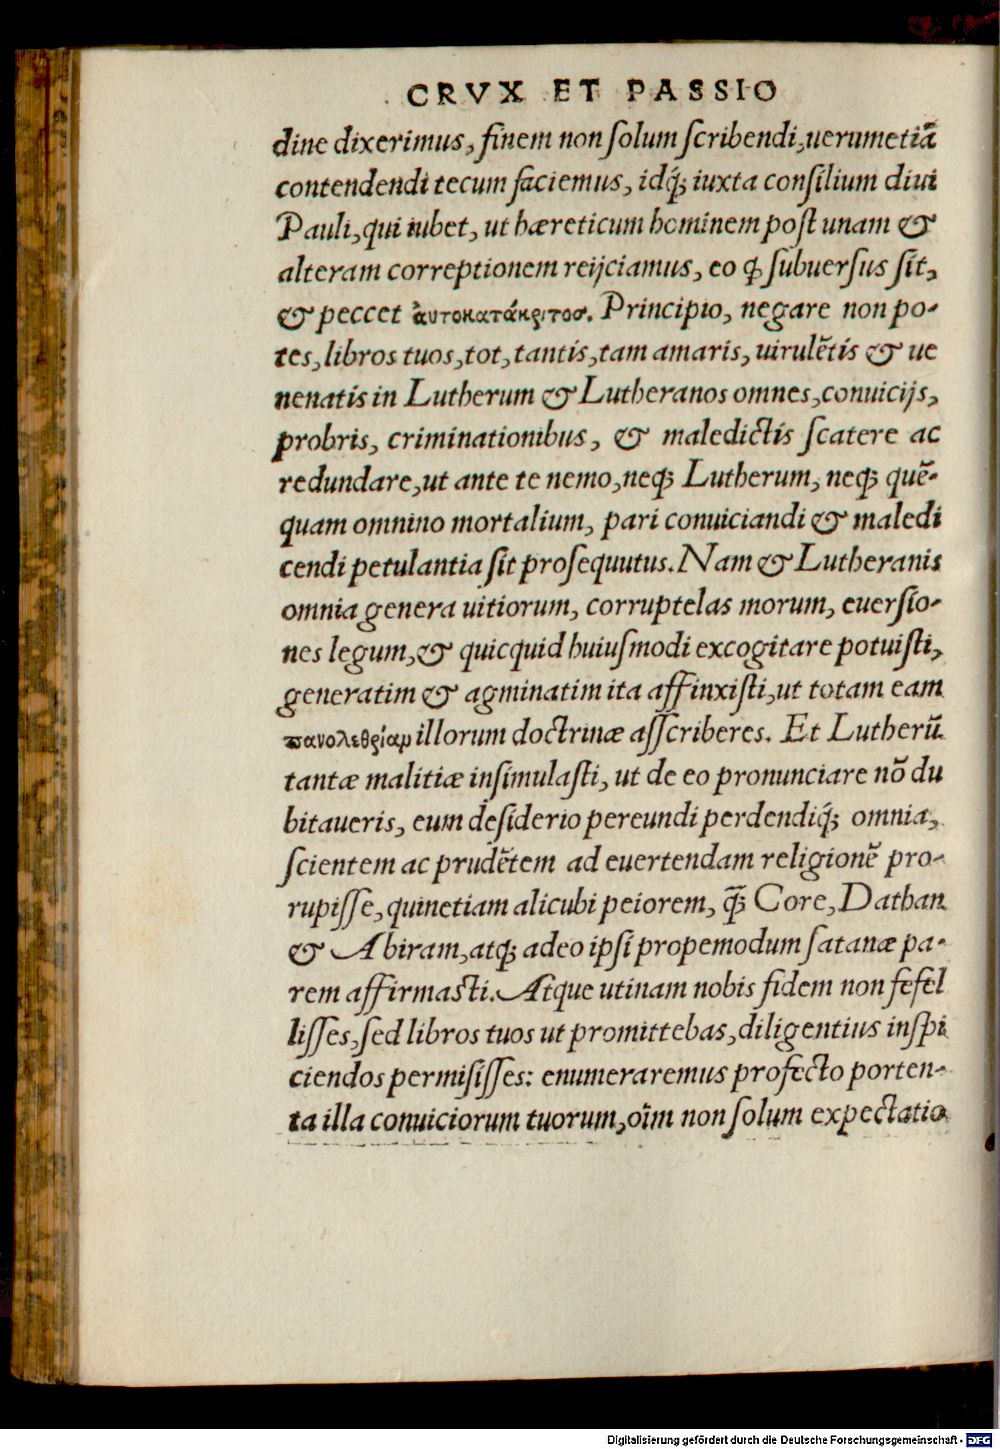 CRVX ET PASSIO
dine dixerimus, finem non ſolum ſcribendi, uerumetiã
contendendi tecum faciemus, idq́; iuxta conſilium diui
Pauli, qui iubet, ut hæreticum hominem poſt unam &
alteram correptionem reijciamus, eo ꝙ ſubuerſus ſit,
& peccet ἀυτοκατάκριτοσ. Principio, negare non po-
tes, libros tuos, tot, tantis, tam amaris, uirulẽtis & ue
nenatis in Lutherum & Lutheranos omnes, conuicijs,
probris, criminationibus, & maledictis ſcatere ac
redundare, ut ante te nemo, neq; Lutherum, neq; quẽ-
quam omnino mortalium, pari conuiciandi & maledi
cendi petulantia ſit proſequutus. Nam & Lutheranis
omnia genera uitiorum, corruptelas morum, euerſio-
nes legum, & quicquid huiuſmodi excogitare potuiſti,
generatim & agminatim ita affinxiſti, ut totam eam
πανολεθρίαμ illorum doctrinæ aſſcriberes. Et Lutherũ
tantæ malitiæ inſimulaſti, ut de eo pronunciare nõ du
bitaueris, eum deſiderio pereundi perdendiq́; omnia,
ſcientem ac prudẽtem ad euertendam religionẽ pro-
rupiſſe, quinetiam alicubi peiorem, q̃; Core, Dathan
& Abiram, atq; adeo ipſi propemodum ſatanæ pa-
rem affirmasti. Atque utinam nobis fidem non fefel
liſſes, ſed libros tuos ut promittebas, diligentius inſpi
ciendos permiſiſſes: enumeraremus profecto porten-
ta illa conuiciorum tuorum, oĩm non ſolum expectatio
Digitalisierung gefördert durch die Deutsche Forschungsgemeinschaft - DFG